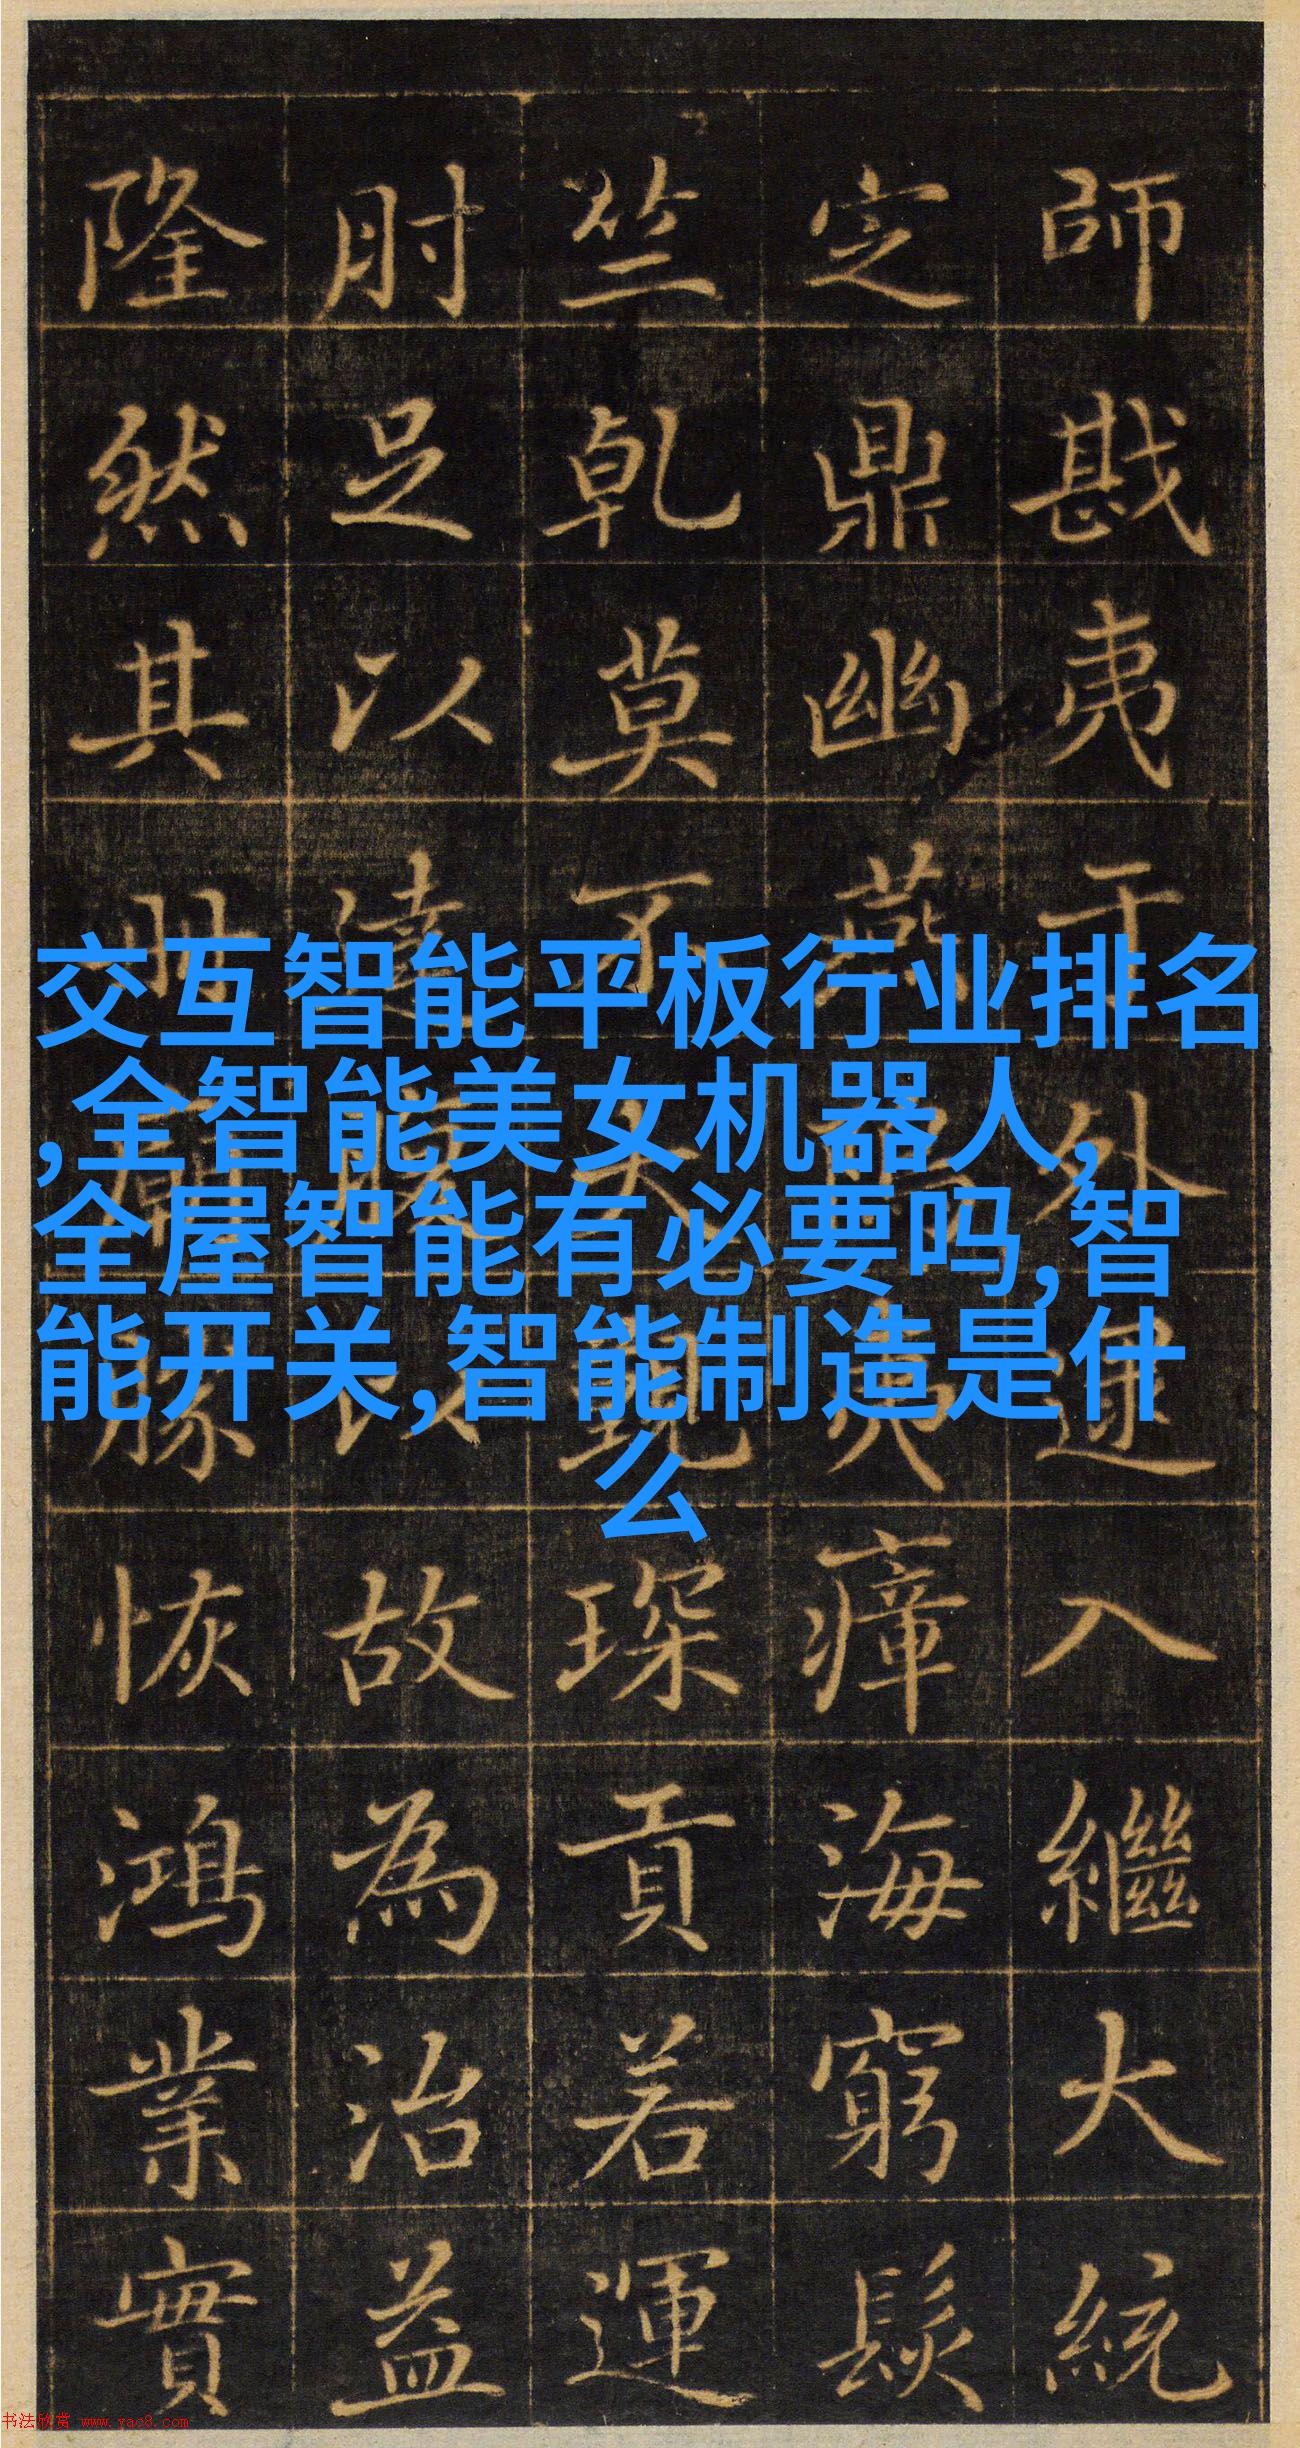 交互智能平板行业排名
,全智能美女机器人,
全屋智能有必要吗,智
能开关,智能制造是什
么
師戡夷于外逮入繼大統
定鼎幽燕夷瘴海窮髮
竺乾莫不琛貢若運
肘足以達以故為治益
隆然其勝恢鴻業實
书法欣赏 www.yac8.com